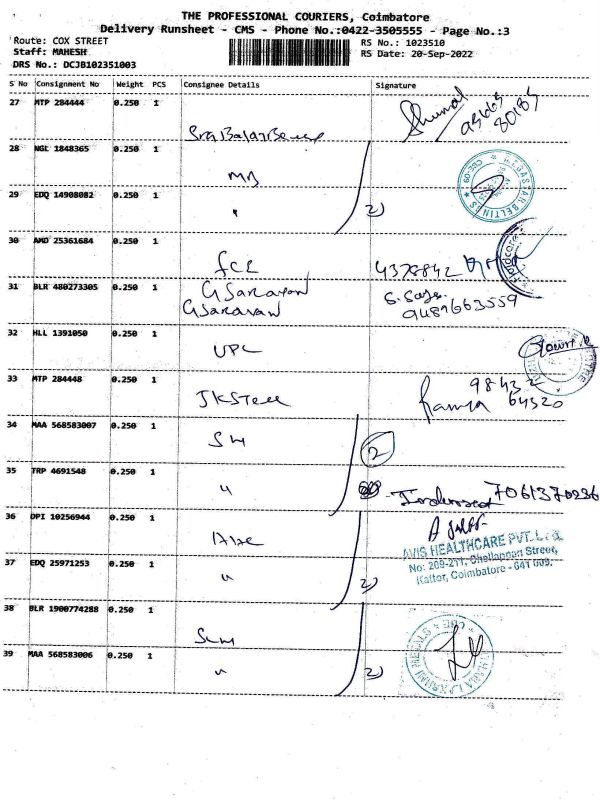 THE PROFESSIONAL COURIERS, Coimbatore
Delivery Runsheet - CMS - Phone No.:0422-3505555 - Page No.:3
Route: COX STREET
RS No.: 1023510
Staff: MAHESH
RS Date: 20-Sep-2022
DRS No.: DCJB102351003
S No Consignment No Weight PCS Consignee Details Signature
27 MTP 284444 0.250 1
28 NGL 1848365 0.250 1
MB
MEGASTAR BELTINGS
29 EDQ 14908082 0.250 1
"
2)
30 AMD 25361684 0.250 1
fCL
4378842
31 BLR 480273305 0.250 1
GSaravan
GSaravan
9487663559
32 HLL 1391050 0.250 1
UPC
33 MTP 284448 0.250 1
JKSTeel
98432
64320
34 MAA 568583007 0.250 1
SM
2
35 TRP 4691548 0.250 1
"
7061370236
36 DPI 10256944 0.250 1
AVIS HEALTHCARE PVT. Ltd.
No: 209-211, Chellappan Street,
Kattor, Coimbatore - 641 009.
37 EDQ 25971253 0.250 1
"
2)
38 BLR 1900774288 0.250 1
SLM
39 MAA 568583006 0.250 1
"
2)